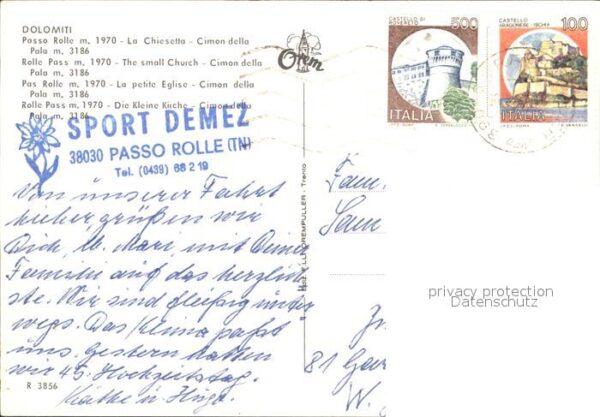 DOLOMITI
Passo Rolle m. 1970 - La Chiesetta - Cimon della
Pala m. 3186
Rolle Pass m. 1970 - The small Church - Cimon della
Pala m. 3186
Pas Rolle m. 1970 - La petite Eglise - Cimon della
Pala m. 3186
Rolle Pass m. 1970 - Die Kleine Kirche - Cimon della
Pala m. 3186
SPORT DEMEZ
38030 PASSO ROLLE (TN)
Tel. (0439) 68 2 19
Von unserer Fahrt
hieher grüßen wir
Dich, lb. Mari, mit Deiner
Familie auf das herzlich-
ste. Wir sind fleißig unter
wegs. Das Klima paßt
uns. Gestern hatten
wir 45. Hochzeitstag.
Käthe u. Hugo.
R 3856
Orem
F.LLI OREMPULLER - Trento
CASTELLO DI
ROVERETO
500
ITALIA
CASTELLO
ARAGONESE - ISCHIA
100
ITALIA
Fam.
privacy protection
Datenschutz
81 Gar
W.